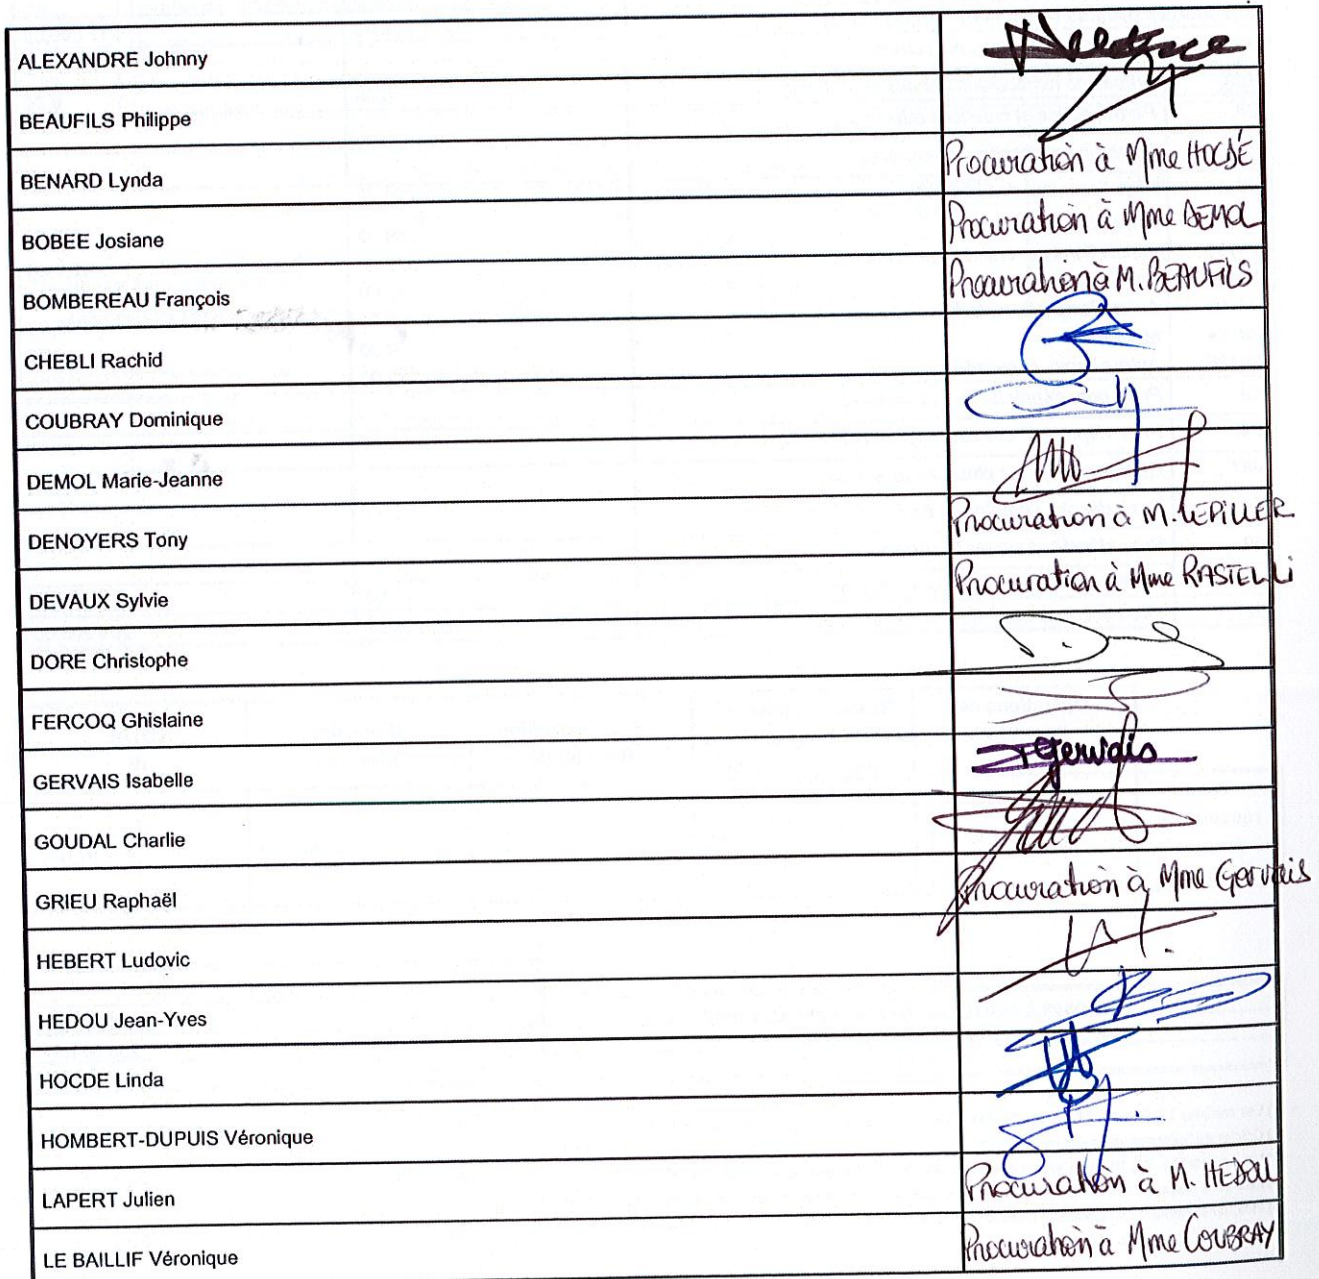 ALEXANDRE Johnny
BEAUFILS Philippe
BENARD Lynda Procuration à Mme HOCDÉ
BOBEE Josiane Procuration à Mme DEMOL
BOMBEREAU François Procuration à M. BEAUFILS
CHEBLI Rachid
COUBRAY Dominique
DEMOL Marie-Jeanne
DENOYERS Tony Procuration à M. LEPILLER
DEVAUX Sylvie Procuration à Mme RASTELLi
DORE Christophe
FERCOQ Ghislaine
GERVAIS Isabelle Gervais
GOUDAL Charlie
GRIEU Raphaël Procuration à Mme Gervais
HEBERT Ludovic
HEDOU Jean-Yves
HOCDE Linda
HOMBERT-DUPUIS Véronique
LAPERT Julien Procuration à M. HEDOU
LE BAILLIF Véronique Procuration à Mme COUBRAY